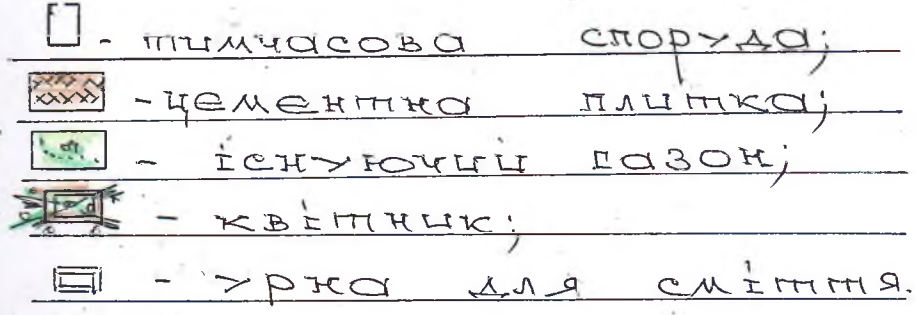 - тимчасова споруда;
- цементна плитка;
- існуючий газон;
- квітник;
- урна для сміття.